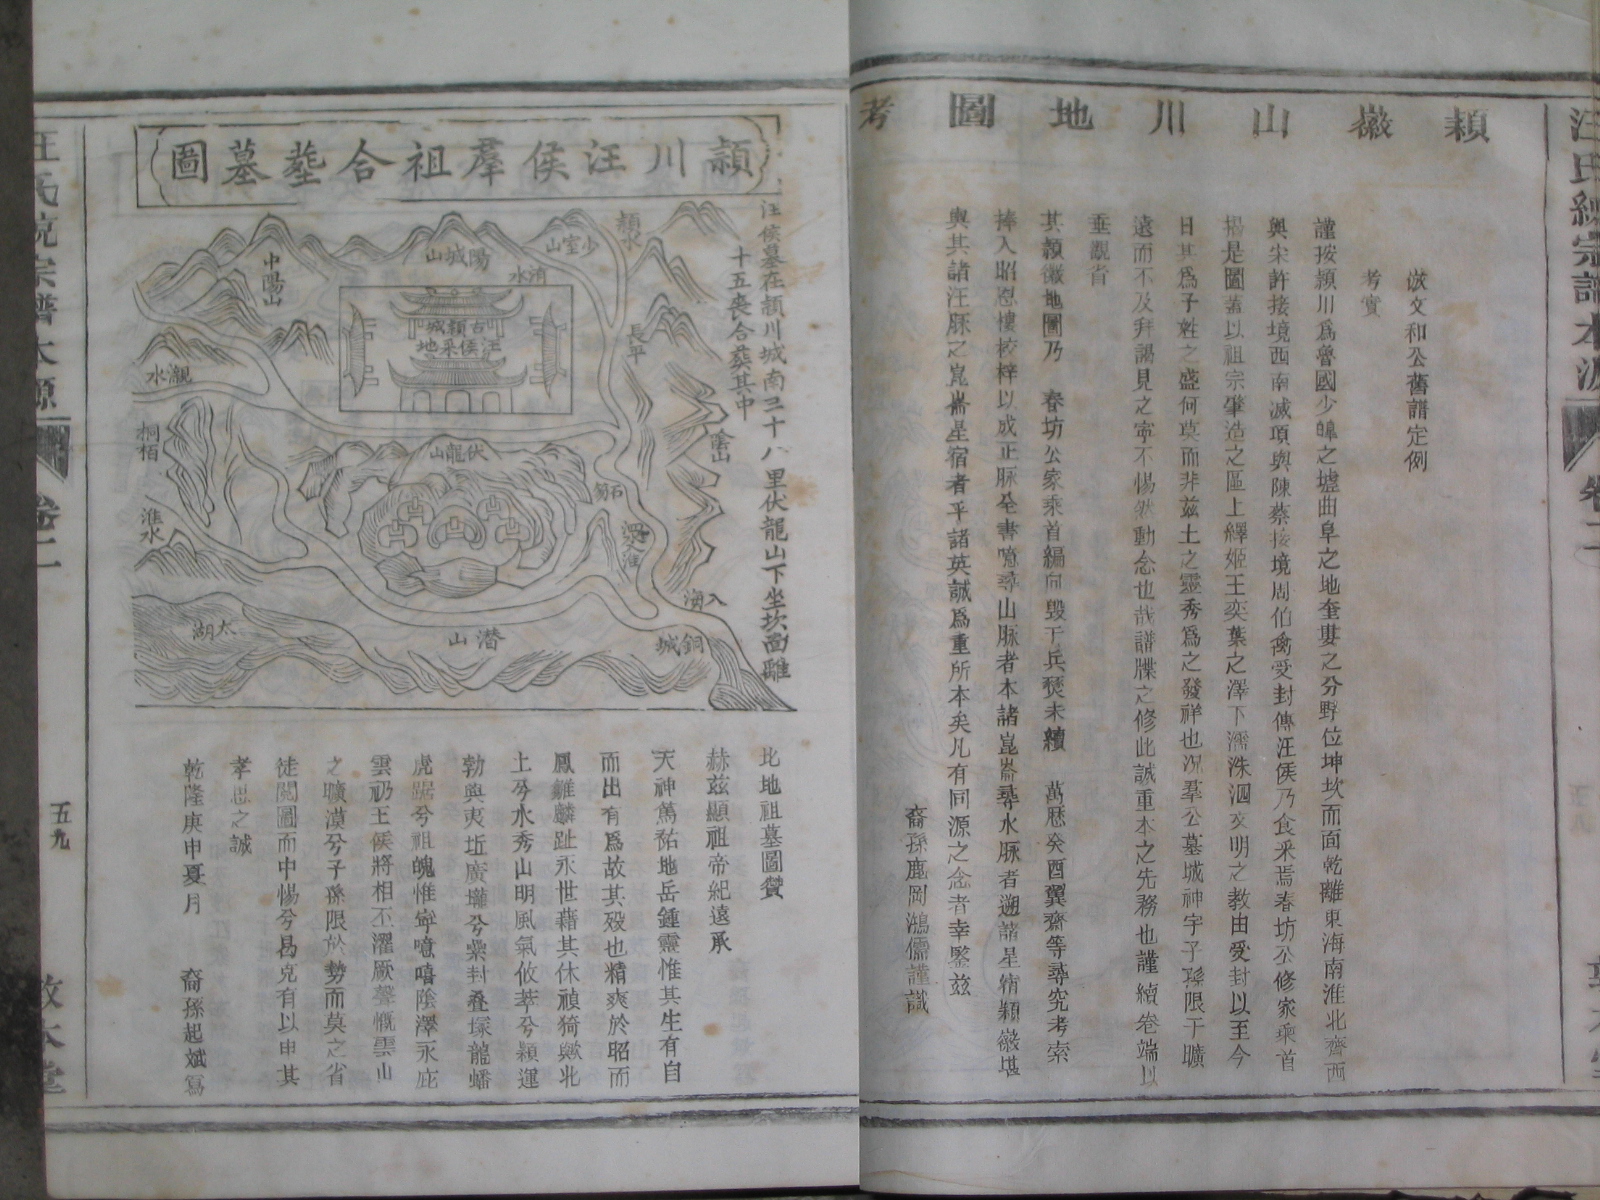 潁㠲山川地圖考
倣文和公舊譜定例
考實
謹按潁川爲魯國少皥之墟曲阜之地奎婁之分野位坤坎而面乾離東海南淮北齊西
與宋許接境西南滅項與陳蔡接境周伯禽受封傳汪侯乃食采焉春坊公修家乘首
揭是圖蓋以祖宗肇造之區上繹姬王奕葉之澤下濡洙泗文明之教由受封以至今
日其爲子姓之盛何莫而非兹土之靈秀爲之發祥也况羣公墓城神宇子孫限于曠
遠而不及拜謁見之寜不惕然動念也哉譜牒之修此誠重本之先務也謹續卷端以
垂觀省
其潁地圖乃 春坊公家乘首編向毀于兵燹未續 萬曆癸酉翼齋等尋究考索
捧入昭恩樓校梓以成正脉全書噫尋山脉者本諸崑崙尋水脉者遡諸星宿潁堪
與其諸汪脉之崑崙星宿者乎諸英誠爲重所本矣凡有同源之念者幸鑒兹
裔孫鹿岡鴻儒謹識
汪氏統宗譜本源
卷二
潁川汪侯羣祖合塟墓圖
汪侯墓在潁川城南三十八里伏龍山下坐坎面離
十五喪合葬其中
潁水
少室山
陽城山
洧水
中陽山
古潁城
汪侯采地
長平
瀙水
陰山
桐栢
伏龍山
淮水
入海
太湖
潛山
銅城
北地祖墓圖贊
赫兹顯祖帝紀遠承
天神篤祐地岳鍾靈惟其生有自
而出有爲故其殁也精爽於昭而
鳳雛麟趾永世藉其休禎猗歟北
上兮水秀山明風氣攸萃兮潁運
勃興夷垢廣壠兮紫封叠塚龍蟠
虎踞兮祖魄惟寜噫嘻陰澤永庇
雲礽王侯將相丕濯厥聲慨雲山
之曠漠兮子孫限於勢而莫之省
徒閱圖而中惕兮曷克有以申其
孝思之誠
乾隆庚申夏月 裔孫起斌寫
汪氏統宗譜本源
卷二
五九
敦本堂